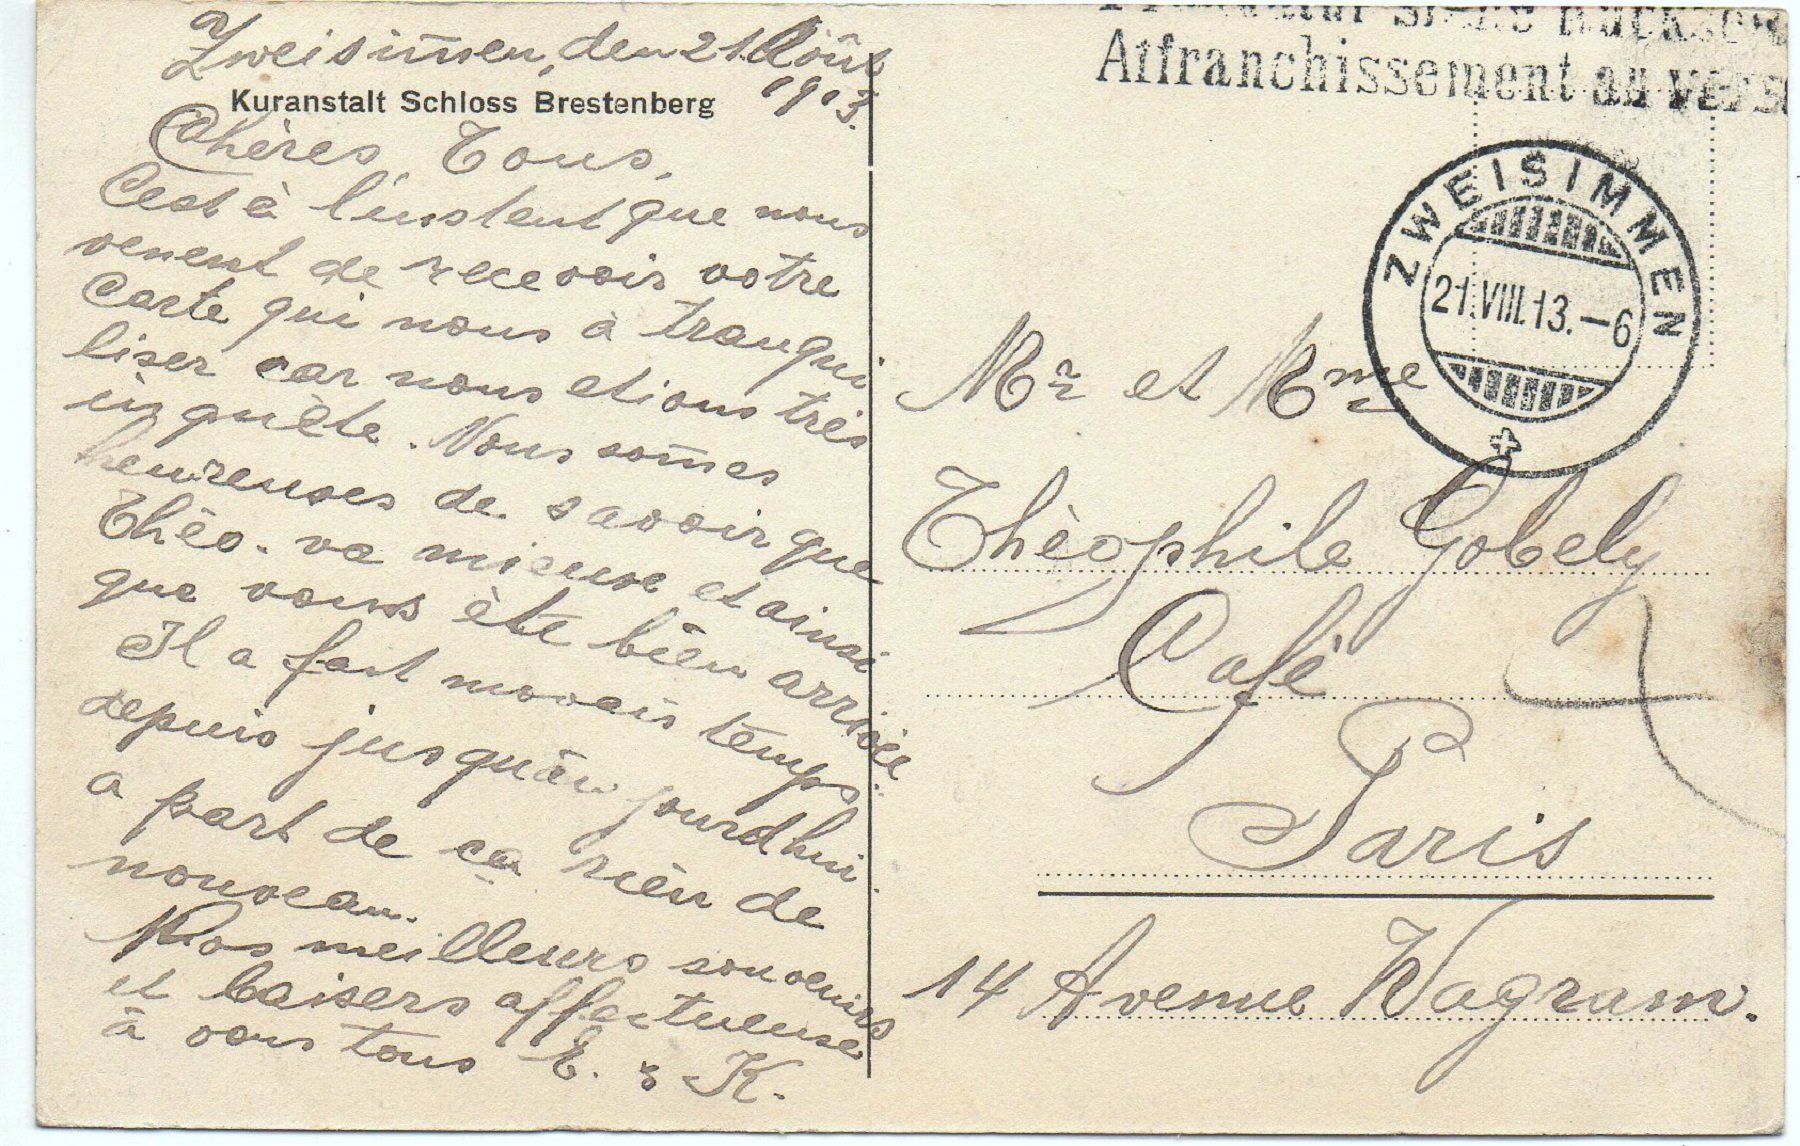 Zweisim̄en, den 21 Août
1913.
Kuranstalt Schloss Brestenberg
Chères Tous,
C'est à l'instent que nous
venent de recevoir votre
Carte qui nous à tranqui
liser car nous etions très
inquiète. Nous som̄es
heureuses de savoir que
Théo. va mieuse et ainsi
que vous ète bièn arrivée.
Il a fait mauvais temps,
depuis jusqu'àu jourdhui.
a part de ça rièn de
nouveau.
Nos meilleurs souvenirs
et baisers affectueuse
à vous tous E. & K.
Affranchissement au verso
ZWEISIMMEN
21.VIII.13.-6
Mr et Mme
Thèophile Gobely
Café
Paris
14 Avenue Wagram.